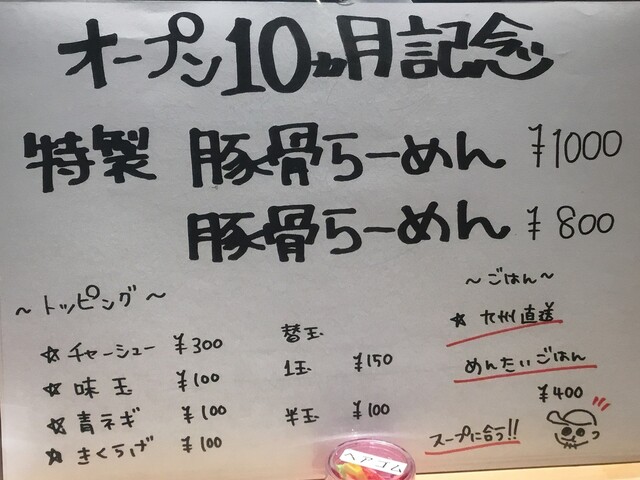 オープン10ヵ月記念
特製 豚骨らーめん ¥1000
豚骨らーめん ¥800
~トッピング~
☆チャーシュー ¥300
☆味玉 ¥100
☆青ネギ ¥100
☆きくらげ ¥100
替玉
1玉 ¥150
半玉 ¥100
~ごはん~
☆九州直送
めんたいごはん
¥400
スープに合う!!
ヘアゴム